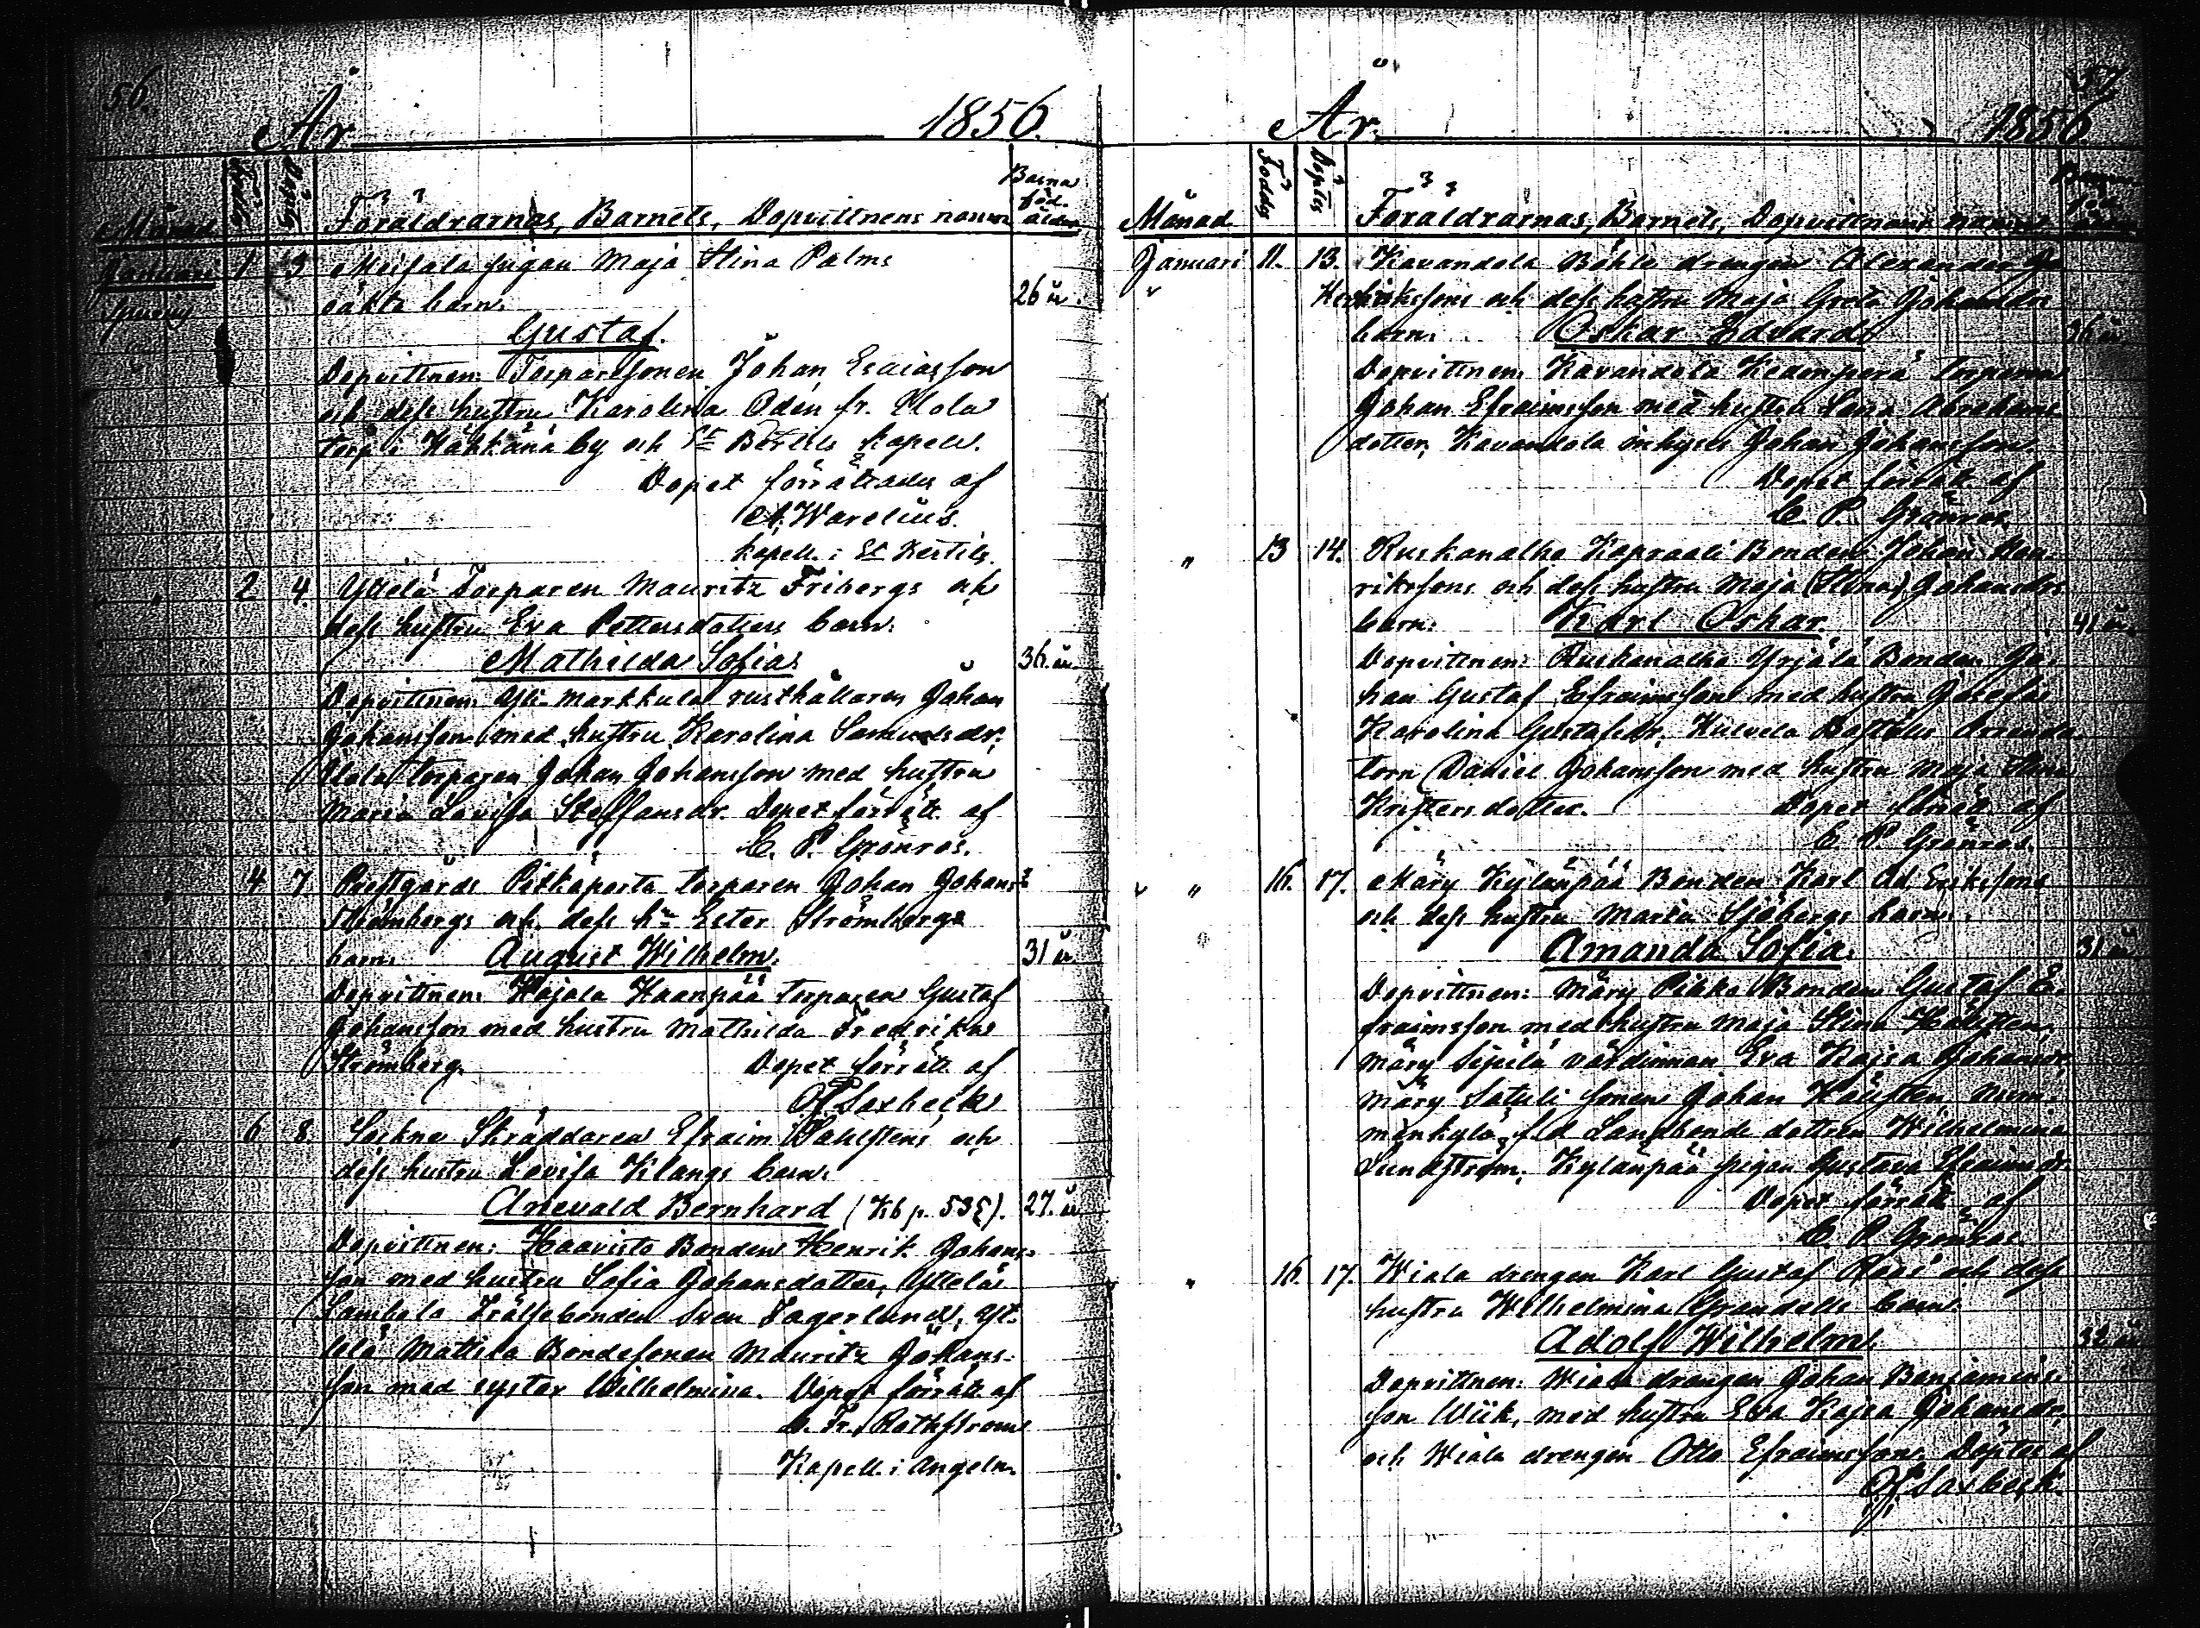 56.
År 1856.
Månad Föddes Döptes Föräldrarnas, Barnets, Dopvittnens namn Barna föd. ålder
Januari 1 3 Meijala pigan Maja Stina Palms
oäkta barn. 26 år.
Gustaf.
Dopvittnen: Torparesonen Johan Esaiasson
och dess hustru Karolina Odén fr. Ulola
torp i Käkkänä by och St Bertils kapell.
Dopet förrättades af
A. Warelius.
kapell. i St Bertils.
" " 2 4. Yttelä Torparen Mauritz Fribergs och
dess hustru Eva Pettersdotters barn:
Mathilda Sofia. 36. år.
Dopvittnen: Yli-Markkula rusthållaren Johan
Johansson med hustru Karolina Samuelsdr.
Ulola torparen Johan Johansson med hustru
Maria Lovisa Steffansdr. Dopet förrätt. af
C. P. Grönros.
" " 4 7 Prestgårds Pitkäporta torparen Johan Johans:
Strömbergs och dess hu Ester Strömbergs
barn: August Wilhelm. 31 år
Dopvittnen: Kojola Haanpää torparen Gustaf
Johansson med hustru Mathilda Fredrika
Strömberg. Dopet förrätt. af
Saxbeck
" " 6 8. Sackno Skräddaren Efraim Dahlstens och
dess hustru Lovisa Klangs barn:
Anevald Bernhard (Kb p. 535). 27. år
Dopvittnen: Haavisto Bonden Henrik Johans-
son med hustru Sofia Johansdotter, Yttelä
Lambola Frälsebonden Sven Fagerlund, Yt-
telä Mattila Bondesonen Mauritz Johans-
son med syster Wilhelmina. Dopet förrätt af
C. Fr. Rothström
Kapell. i Angeln.
57.
År. 1856.
Månad Föddes Döptes Föräldrarnas, Barnets, Dopvittnens namn
Januari 11. 13. Kavandola Böhle drengen Alexander
Henrikssons och dess hustru Maja Greta Johansdrs
barn: Oskar Edvard 36 år
Dopvittnen: Kavandola Kedonperä Torparen
Johan Efraimsson med hustru Lena Abrahams-
dotter, Kavandola inhyses Johan Johansson.
Dopet förrätt af
C. P. Grönros.
" 13 14. Ruskanalho Kapraali Bonden Johan Hen-
rikssons och dess hustru Maja (Stina) Johansdrs
barn: Karl Oskar. 41 år.
Dopvittnen: Ruskanalho Yrjälä Bonden Jo-
han Gustaf Efraimsson med hustru Josefa
Karolina Gustafsdr. Kulvela Boställs Arenda-
torn Daniel Johansson med hustru Maja Stina
Kristersdotter. Dopet förrätt af
C. P. Grönros.
" " 16. 17. Märy Kylänpää Bonden Karl Ad. Erikssons
och dess hustru Maria Sjöbergs barn:
Amanda Sofia. 31 år
Dopvittnen: Märy Pirkko Bonden Gustaf E-
fraimsson med hustru Maja Stina Hällsten,
Märy Sipilä värdinnan Eva Kajsa Johansdr,
Märy Satuli sonen Johan Hällsten, Nurm-
mönkylä f.d Landbonde dottern Wilhelmina
Sundström, Kylänpää pigan Gustava Efraimsdr.
Dopet förrätt af
C. P. Grönros
" 16. 17. Wiala drengen Karl Gustaf Roos och dess
hustru Wilhelmina Grandells barn:
Adolf Wilhelm. 32 år
Dopvittnen: Wiala drengen Johan Benjamins-
son Wiik, med hustru Eva Kajsa Johansdr.
och Wiala drengen Otto Efraimsson. Döptes af
Saxbeck.